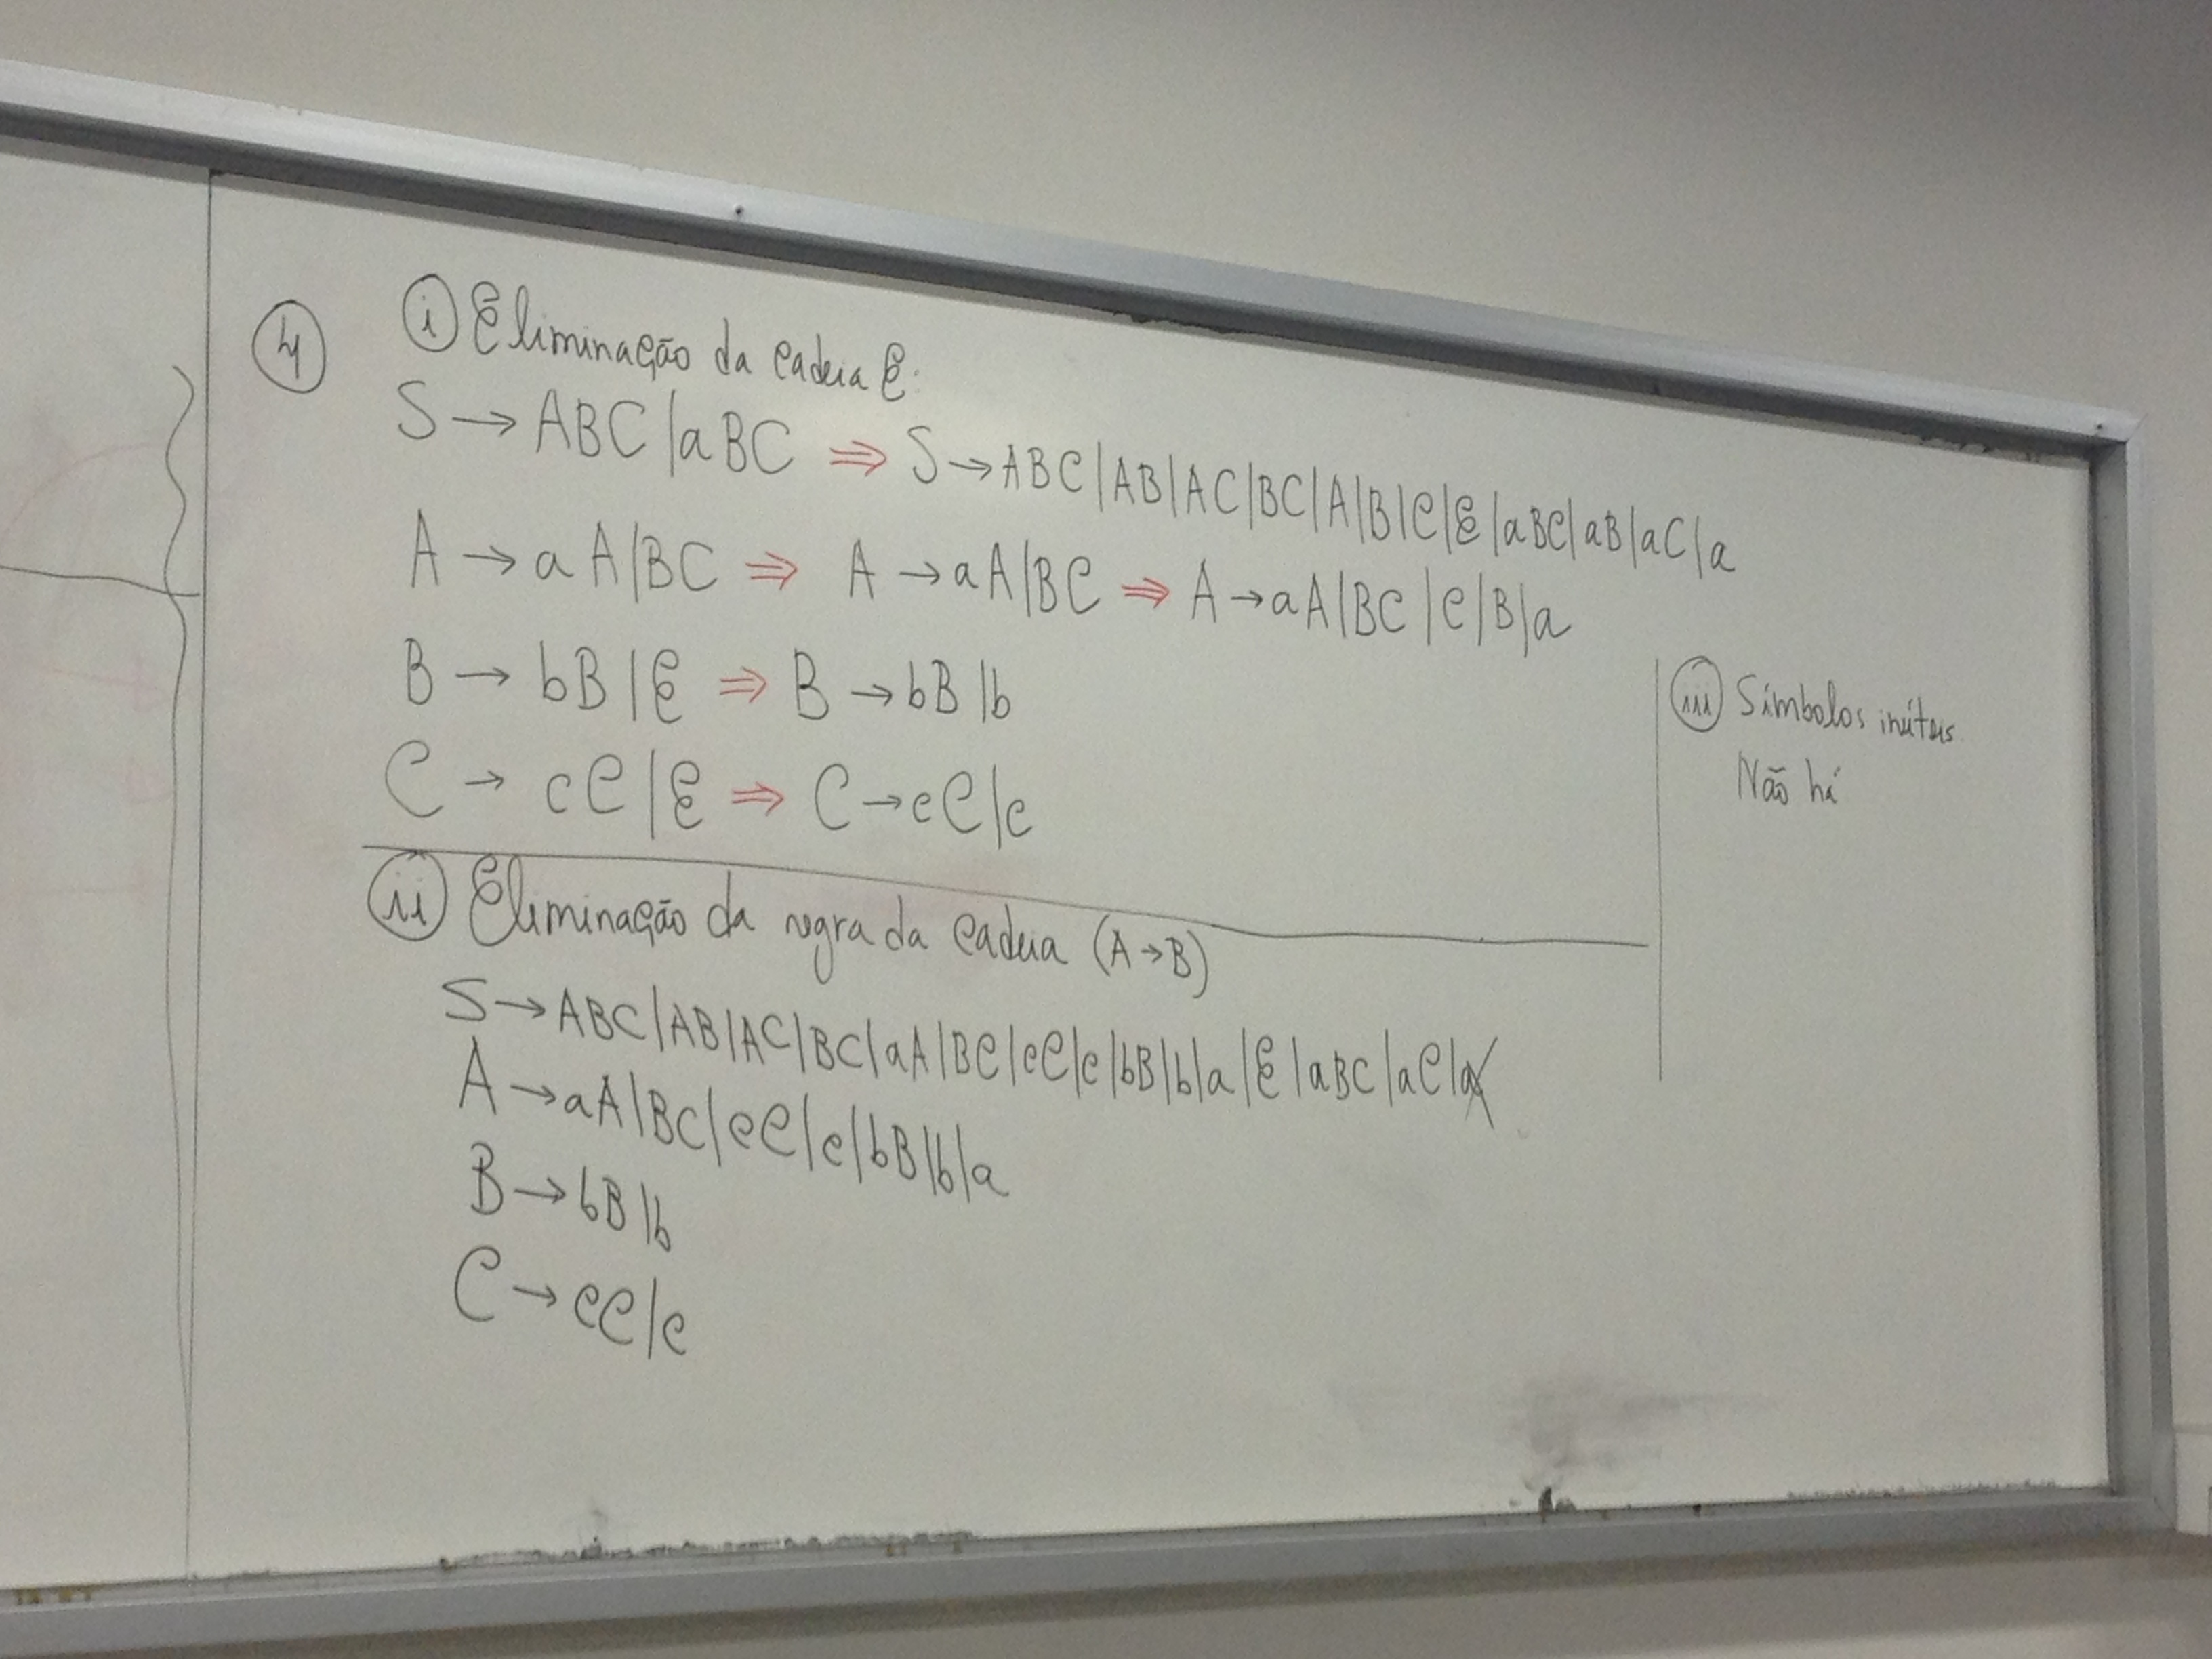 4
i Eliminação da cadeia ε.
S → ABC | aBC ⇒ S → ABC | AB | AC | BC | A | B | C | ε | aBC | aB | aC | a
A → aA | BC ⇒ A → aA | BC ⇒ A → aA | BC | C | B | a
B → bB | ε ⇒ B → bB | b
C → cC | ε ⇒ C → cC | c
ii Eliminação da regra da cadeia (A → B)
S → ABC | AB | AC | BC | aA | BC | cC | c | bB | b | a | ε | aBC | aC | a
A → aA | BC | cC | c | bB | b | a
B → bB | b
C → cC | c
iii Símbolos inúteis
Não há